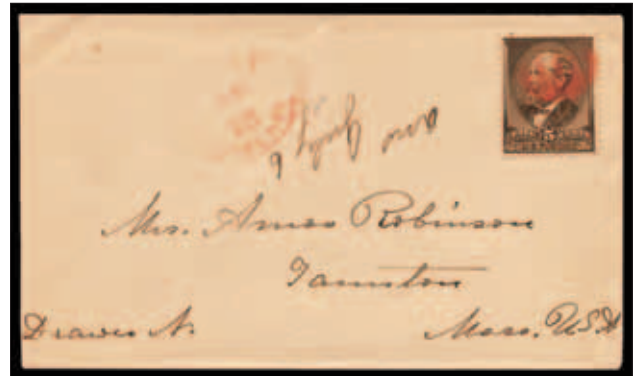 and July 6
Mrs. Amos Robinson
Taunton
Drawer N. Mass. U.S.A